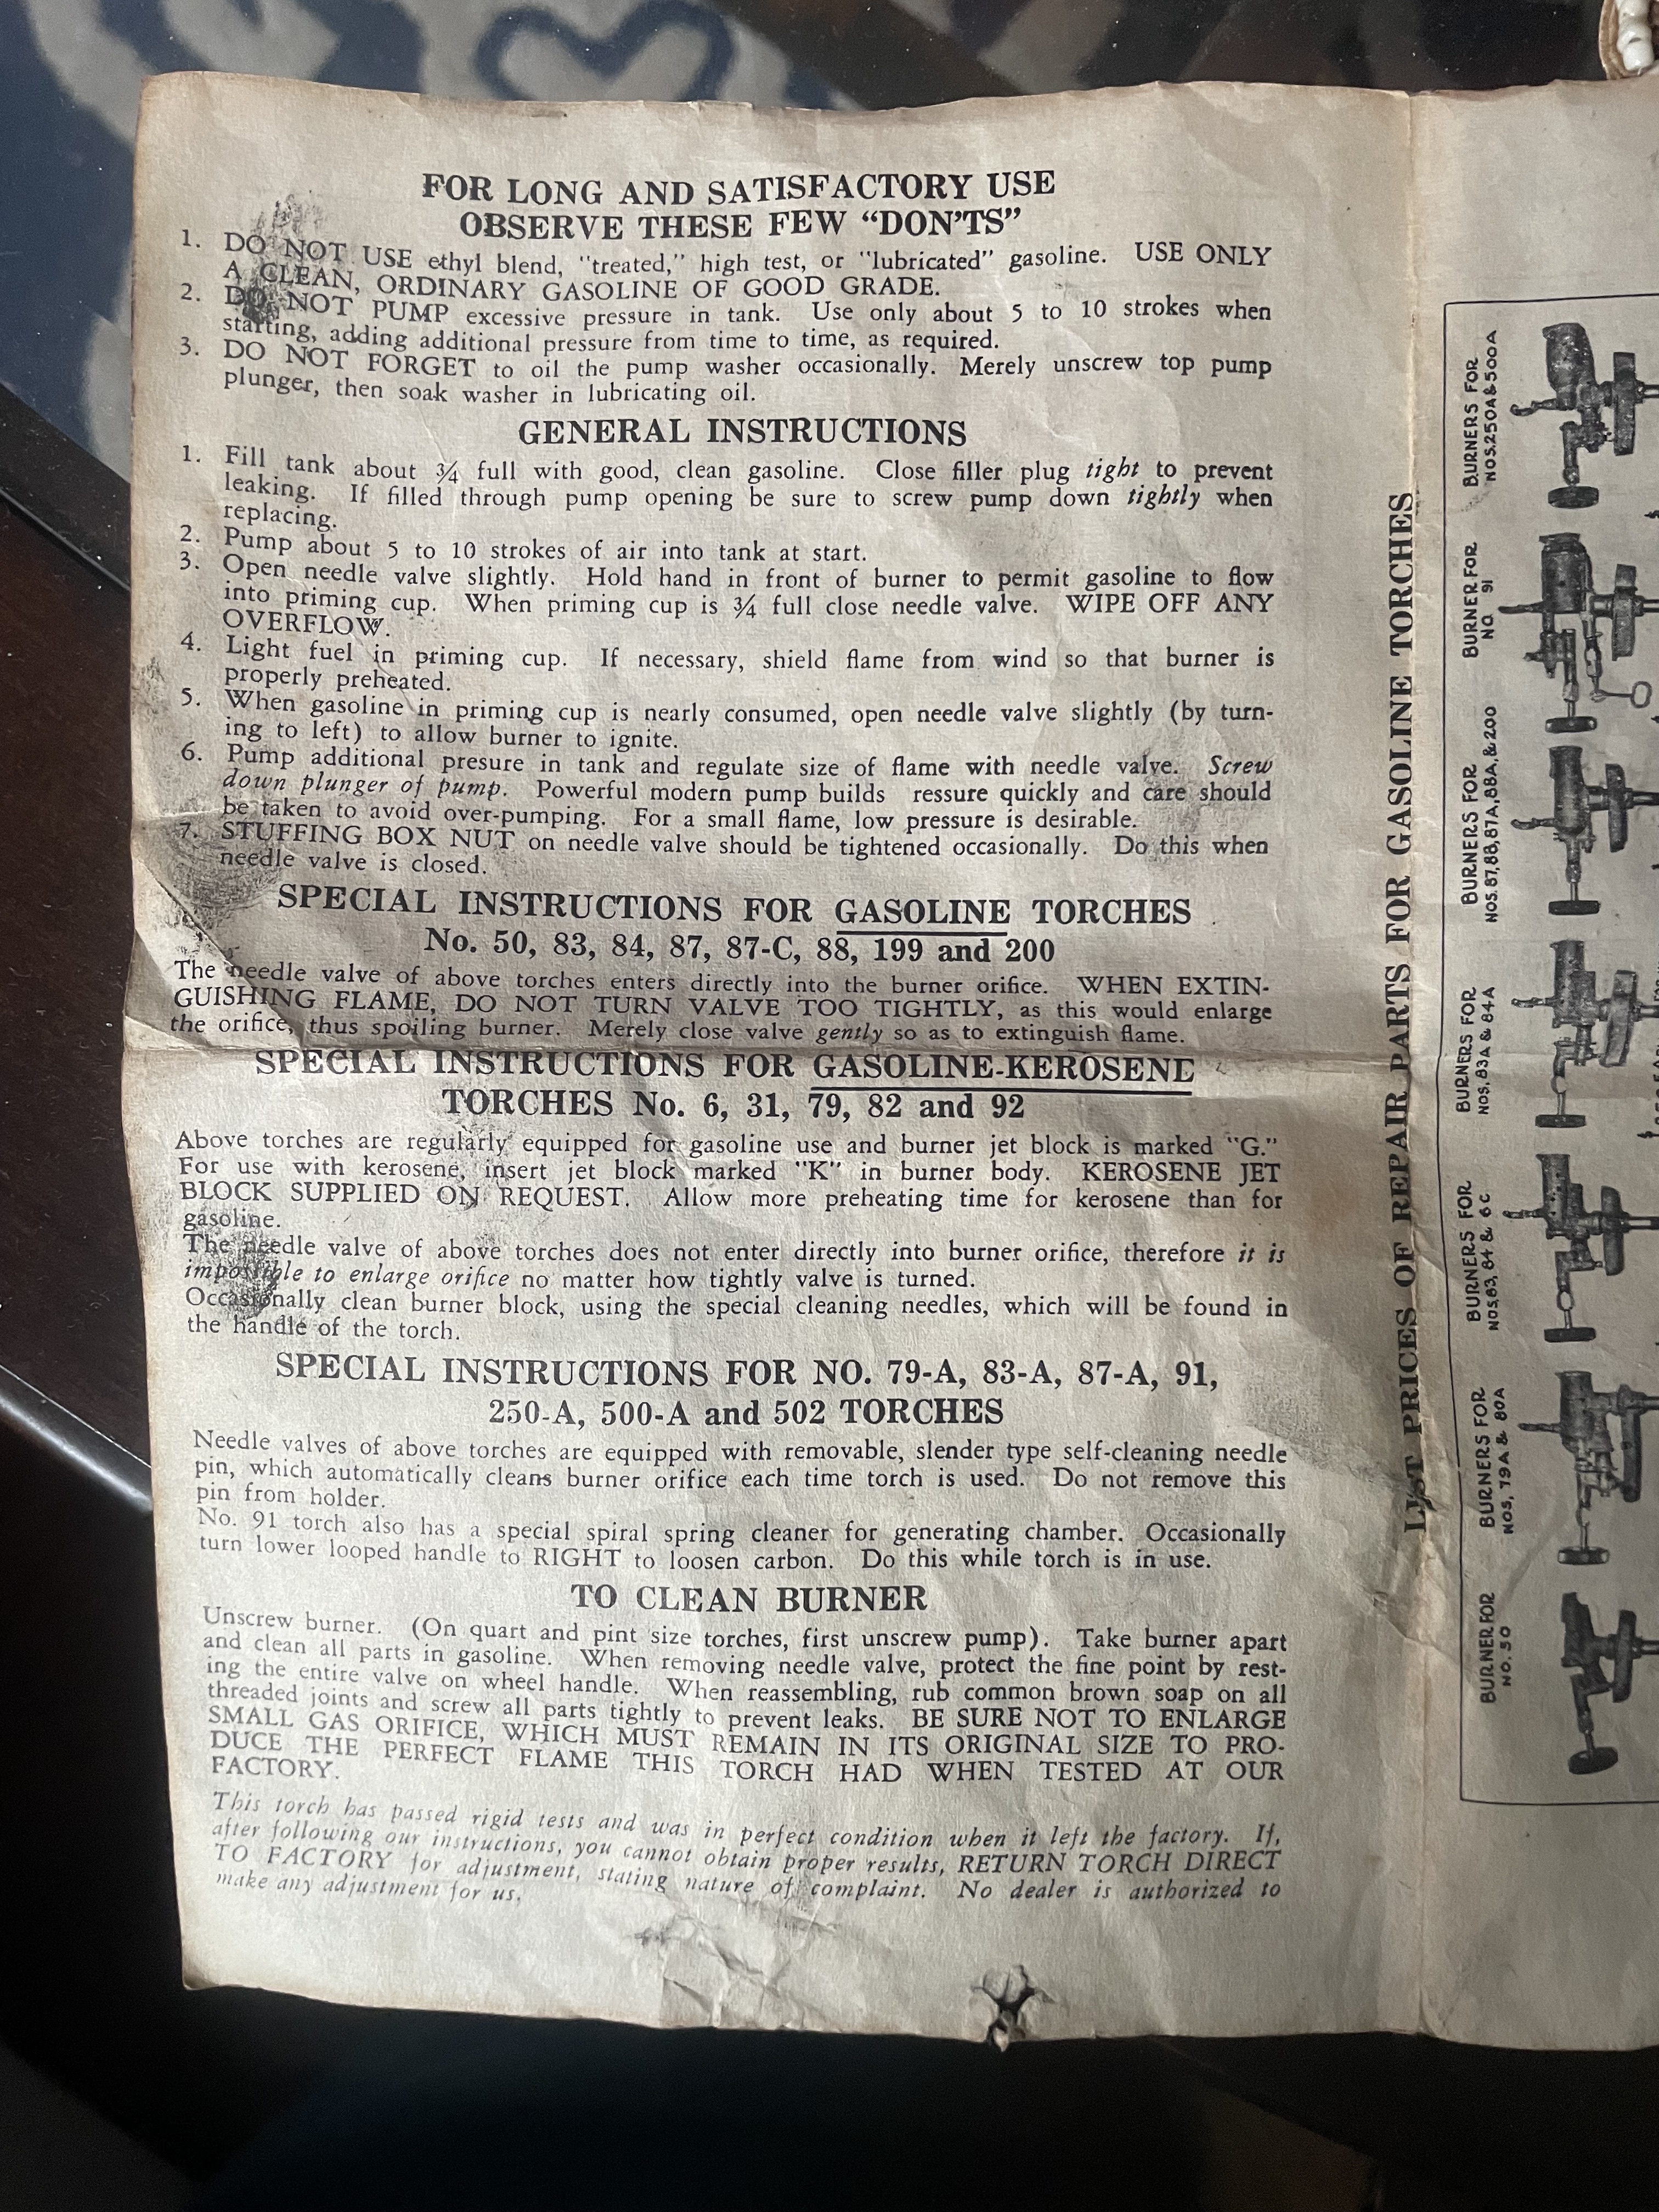 FOR LONG AND SATISFACTORY USE
OBSERVE THESE FEW "DON'TS"
1. DO NOT USE ethyl blend, "treated," high test, or "lubricated" gasoline. USE ONLY
A CLEAN, ORDINARY GASOLINE OF GOOD GRADE.
2. DO NOT PUMP excessive pressure in tank. Use only about 5 to 10 strokes when
starting, adding additional pressure from time to time, as required.
3. DO NOT FORGET to oil the pump washer occasionally. Merely unscrew top pump
plunger, then soak washer in lubricating oil.
GENERAL INSTRUCTIONS
1. Fill tank about ¾ full with good, clean gasoline. Close filler plug tight to prevent
leaking. If filled through pump opening be sure to screw pump down tightly when
replacing.
2. Pump about 5 to 10 strokes of air into tank at start.
3. Open needle valve slightly. Hold hand in front of burner to permit gasoline to flow
into priming cup. When priming cup is ¾ full close needle valve. WIPE OFF ANY
OVERFLOW.
4. Light fuel in priming cup. If necessary, shield flame from wind so that burner is
properly preheated.
5. When gasoline in priming cup is nearly consumed, open needle valve slightly (by turn-
ing to left) to allow burner to ignite.
6. Pump additional presure in tank and regulate size of flame with needle valve. Screw
down plunger of pump. Powerful modern pump builds ressure quickly and care should
be taken to avoid over-pumping. For a small flame, low pressure is desirable.
7. STUFFING BOX NUT on needle valve should be tightened occasionally. Do this when
needle valve is closed.
SPECIAL INSTRUCTIONS FOR GASOLINE TORCHES
No. 50, 83, 84, 87, 87-C, 88, 199 and 200
The needle valve of above torches enters directly into the burner orifice. WHEN EXTIN-
GUISHING FLAME, DO NOT TURN VALVE TOO TIGHTLY, as this would enlarge
the orifice, thus spoiling burner. Merely close valve gently so as to extinguish flame.
SPECIAL INSTRUCTIONS FOR GASOLINE-KEROSENE
TORCHES No. 6, 31, 79, 82 and 92
Above torches are regularly equipped for gasoline use and burner jet block is marked "G."
For use with kerosene, insert jet block marked "K" in burner body. KEROSENE JET
BLOCK SUPPLIED ON REQUEST. Allow more preheating time for kerosene than for
gasoline.
The needle valve of above torches does not enter directly into burner orifice, therefore it is
impossible to enlarge orifice no matter how tightly valve is turned.
Occasionally clean burner block, using the special cleaning needles, which will be found in
the handle of the torch.
SPECIAL INSTRUCTIONS FOR NO. 79-A, 83-A, 87-A, 91,
250-A, 500-A and 502 TORCHES
Needle valves of above torches are equipped with removable, slender type self-cleaning needle
pin, which automatically cleans burner orifice each time torch is used. Do not remove this
pin from holder.
No. 91 torch also has a special spiral spring cleaner for generating chamber. Occasionally
turn lower looped handle to RIGHT to loosen carbon. Do this while torch is in use.
TO CLEAN BURNER
Unscrew burner. (On quart and pint size torches, first unscrew pump). Take burner apart
and clean all parts in gasoline. When removing needle valve, protect the fine point by rest-
ing the entire valve on wheel handle. When reassembling, rub common brown soap on all
threaded joints and screw all parts tightly to prevent leaks. BE SURE NOT TO ENLARGE
SMALL GAS ORIFICE, WHICH MUST REMAIN IN ITS ORIGINAL SIZE TO PRO-
DUCE THE PERFECT FLAME THIS TORCH HAD WHEN TESTED AT OUR
FACTORY.
This torch has passed rigid tests and was in perfect condition when it left the factory. If,
after following our instructions, you cannot obtain proper results, RETURN TORCH DIRECT
TO FACTORY for adjustment, stating nature of complaint. No dealer is authorized to
make any adjustment for us.
LIST PRICES OF REPAIR PARTS FOR GASOLINE TORCHES
BURNER FOR
NO. 50
BURNERS FOR
NOS. 79A & 80A
BURNERS FOR
NOS. 83, 84 & 6C
BURNERS FOR
NOS. 83A & 84A
BURNERS FOR
NOS. 87, 88, 87A, 88A, & 200
BURNER FOR
NO. 91
BURNERS FOR
NOS. 250A & 500A